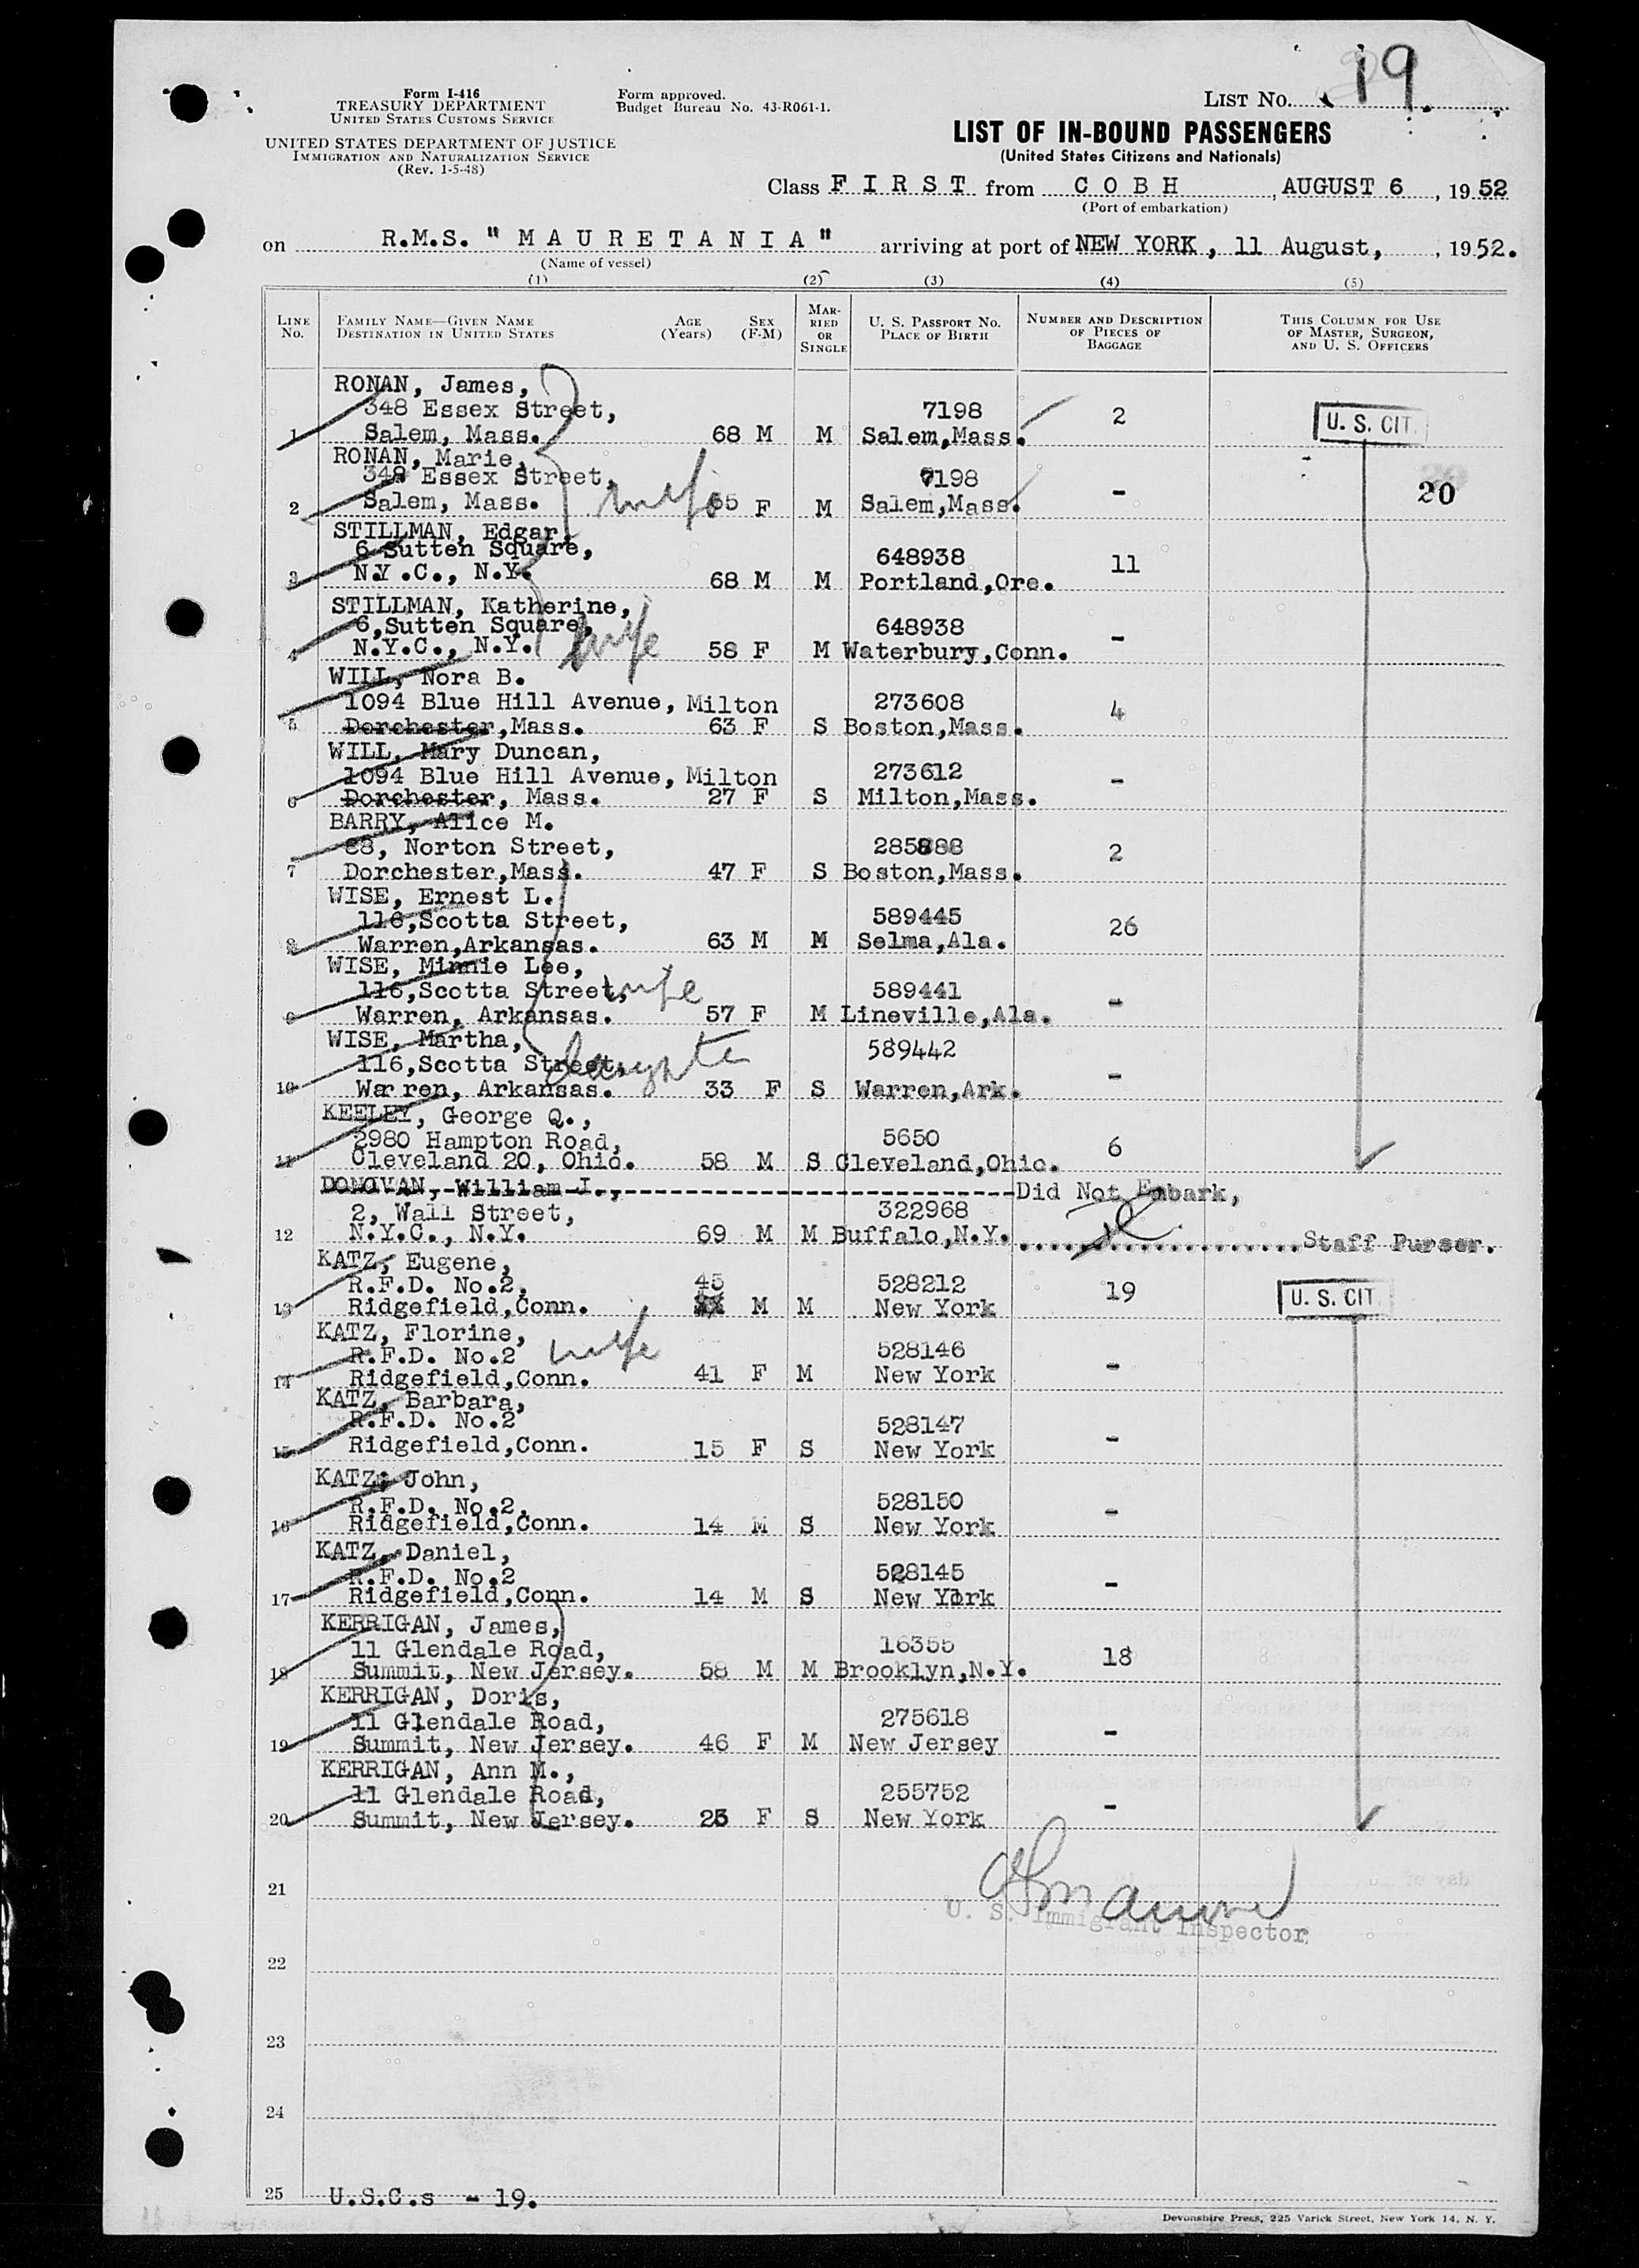 19.
Form I-416
TREASURY DEPARTMENT
UNITED STATES CUSTOMS SERVICE
UNITED STATES DEPARTMENT OF JUSTICE
IMMIGRATION AND NATURALIZATION SERVICE
(Rev. 1-5-48)
Form approved.
Budget Bureau No. 43-R061-1.
LIST No.
LIST OF IN-BOUND PASSENGERS
(United States Citizens and Nationals)
Class F I R S T from C O B H, AUGUST 6, 1952
(Port of embarkation)
on R.M.S. " M A U R E T A N I A " arriving at port of NEW YORK, 11 August, , 1952.
(Name of vessel)
(1) (2) (3) (4) (5)
LINE No. FAMILY NAME—GIVEN NAME DESTINATION IN UNITED STATES AGE (Years) SEX (F-M) MARRIED OR SINGLE U. S. PASSPORT No. PLACE OF BIRTH NUMBER AND DESCRIPTION OF PIECES OF BAGGAGE THIS COLUMN FOR USE OF MASTER, SURGEON, AND U. S. OFFICERS
RONAN, James,
348 Essex Street, 7198 2 U. S. CIT.
1 Salem, Mass. 68 M M Salem,Mass.
RONAN, Marie,
348 Essex Street, wife 7198 - 20
2 Salem, Mass. 65 F M Salem,Mass.
STILLMAN, Edgar,
6 Sutten Square, 648938 11
3 N.Y.C., N.Y. 68 M M Portland,Ore.
STILLMAN, Katherine,
6,Sutten Square, wife 648938 -
4 N.Y.C., N.Y. 58 F M Waterbury,Conn.
WILL, Nora B.
1094 Blue Hill Avenue, Milton 273608 4
5 Dorchester,Mass. 63 F S Boston,Mass.
WILL, Mary Duncan,
1094 Blue Hill Avenue, Milton 273612 -
6 Dorchester, Mass. 27 F S Milton,Mass.
BARRY, Alice M.
88, Norton Street, 285888 2
7 Dorchester,Mass. 47 F S Boston,Mass.
WISE, Ernest L.
116,Scotta Street, 589445 26
8 Warren,Arkansas. 63 M M Selma,Ala.
WISE, Minnie Lee,
116,Scotta Street, wife 589441 -
9 Warren, Arkansas. 57 F M Lineville,Ala.
WISE, Martha,
116,Scotta Street, daughter 589442 -
10 Warren, Arkansas. 33 F S Warren,Ark.
KEELEY, George Q.,
2980 Hampton Road, 5650 6
11 Cleveland 20, Ohio. 58 M S Cleveland,Ohio.
DONOVAN, William J., Did Not Embark,
2, Wall Street, 322968
12 N.Y.C., N.Y. 69 M M Buffalo,N.Y. Staff Purser.
KATZ, Eugene,
R.F.D. No.2, 45 528212 19 U. S. CIT.
13 Ridgefield,Conn. M M New York
KATZ, Florine,
R.F.D. No.2 wife 528146 -
14 Ridgefield,Conn. 41 F M New York
KATZ, Barbara,
R.F.D. No.2 528147 -
15 Ridgefield,Conn. 15 F S New York
KATZ, John,
R.F.D. No.2, 528150 -
16 Ridgefield,Conn. 14 M S New York
KATZ, Daniel,
R.F.D. No.2 528145 -
17 Ridgefield,Conn. 14 M S New York
KERRIGAN, James,
11 Glendale Road, 16355 18
18 Summit, New Jersey. 58 M M Brooklyn,N.Y.
KERRIGAN, Doris,
11 Glendale Road, 275618 -
19 Summit, New Jersey. 46 F M New Jersey
KERRIGAN, Ann M.,
11 Glendale Road, 255752 -
20 Summit, New Jersey. 23 F S New York
21
U. S. Immigrant Inspector
22
23
24
25 U.S.C.s - 19.
Devonshire Press, 225 Varick Street, New York 14, N. Y.